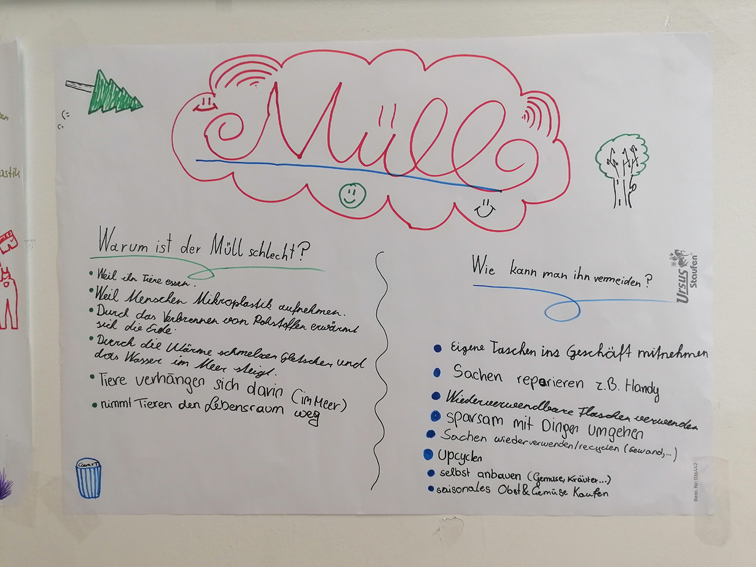 Müll
Warum ist der Müll schlecht?
Weil ihn Tiere essen.
Weil Menschen Mikroplastik aufnehmen.
Durch das Verbrennen von Rohstoffen erwärmt
sich die Erde.
Durch die Wärme schmelzen Gletscher und
das Wasser im Meer steigt.
Tiere verhängen sich darin (im Meer)
nimmt Tieren den Lebensraum weg
Wie kann man ihn vermeiden?
Eigene Taschen ins Geschäft mitnehmen
Sachen reparieren z.B. Handy
Wiederverwendbare Flaschen verwenden
sparsam mit Dingen umgehen
Sachen wiederverwenden/recyclen (Gewand,...)
Upcyclen
selbst anbauen (Gemüse, Kräuter...)
saisonales Obst & Gemüse Kaufen
Ursus
Staufen